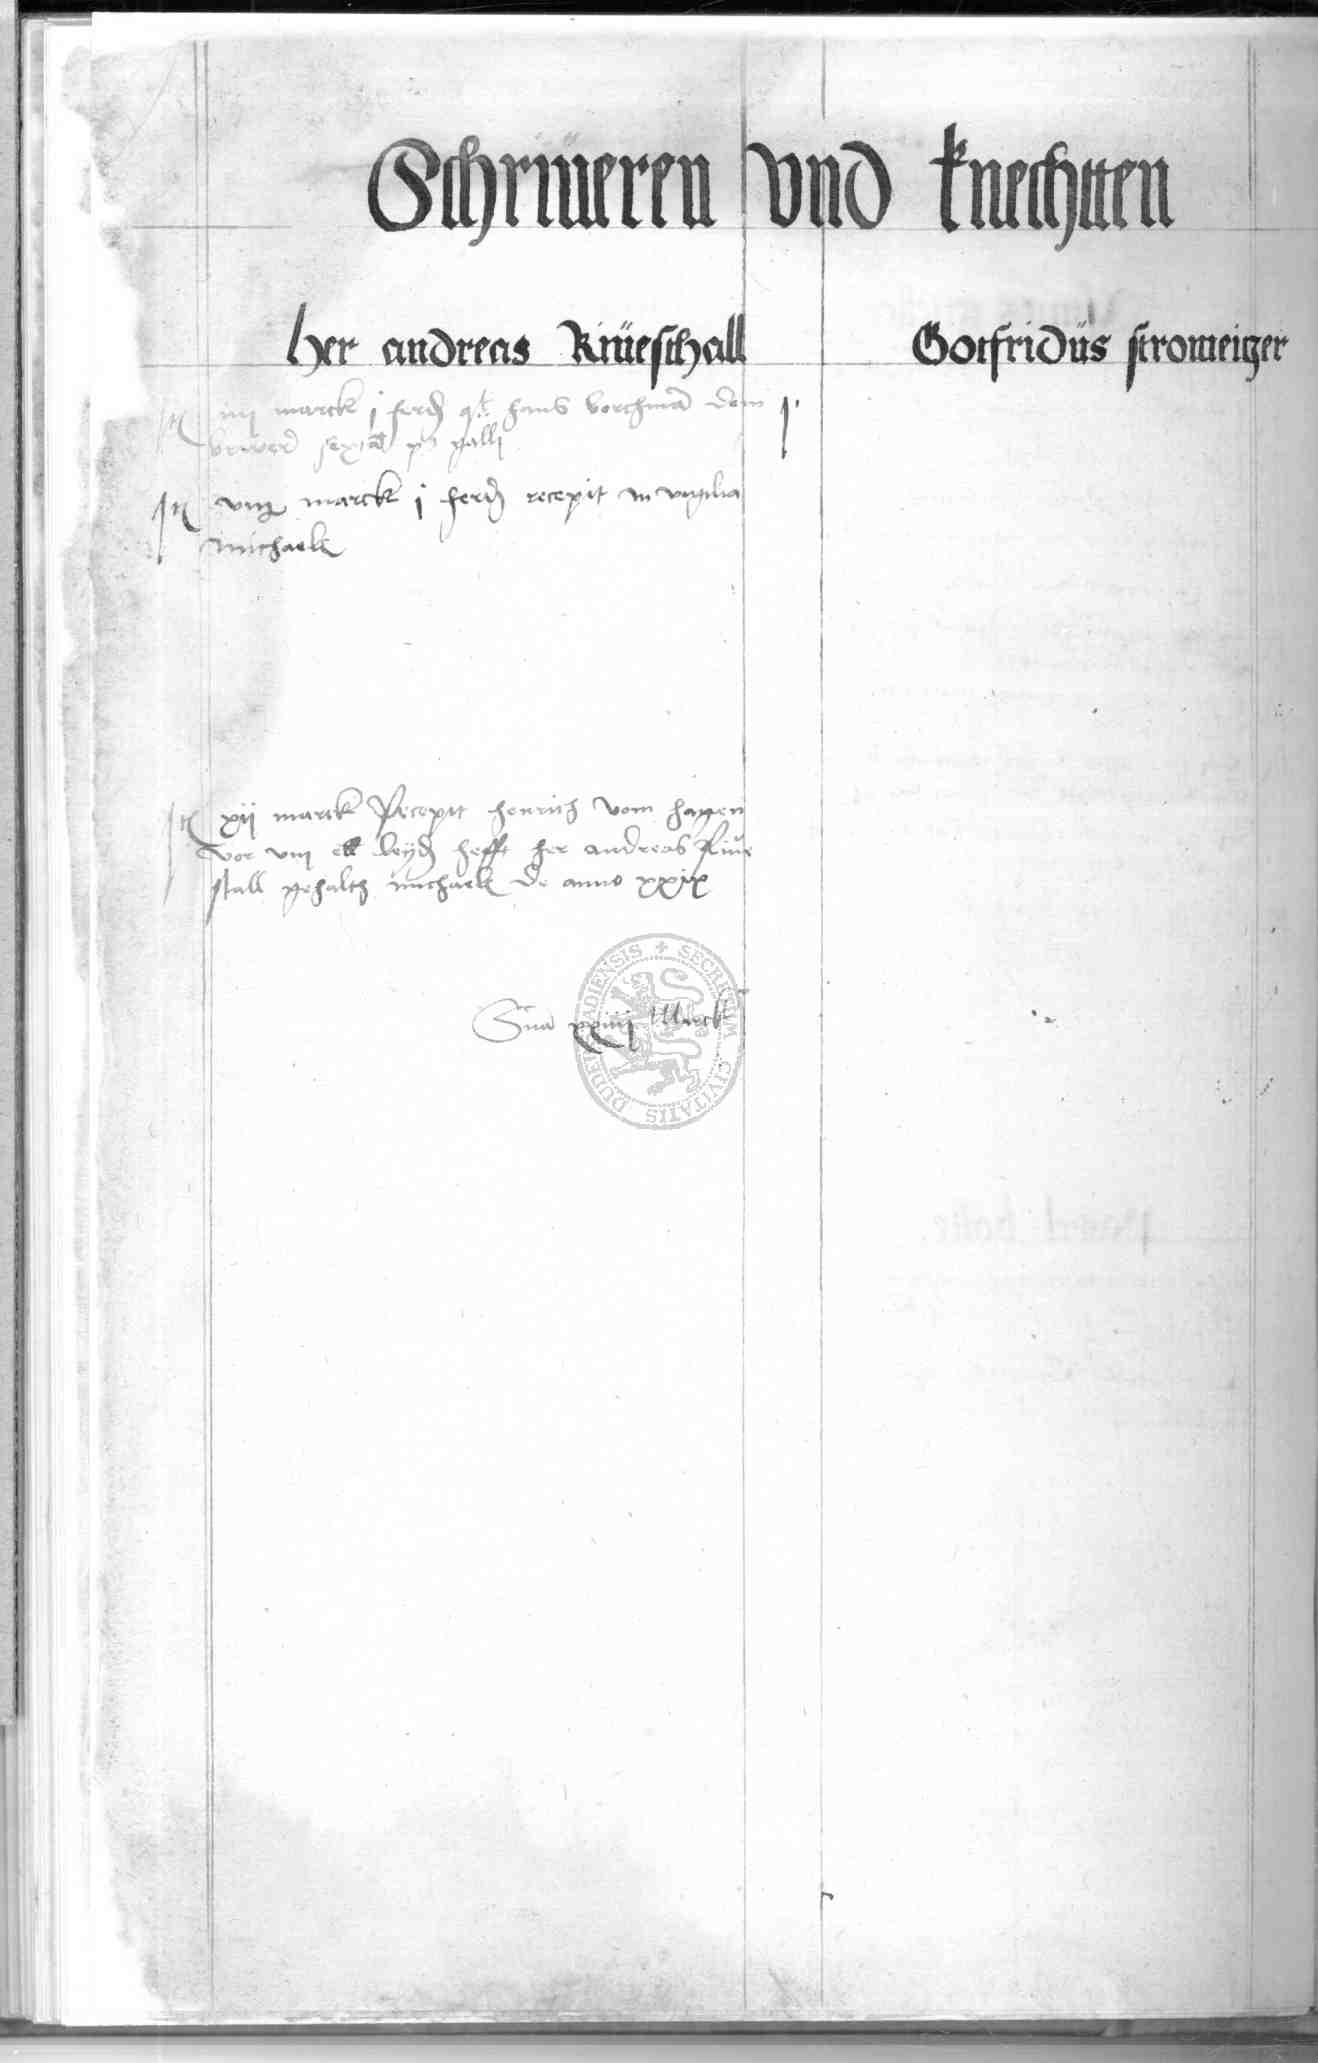 Schriüeren vnd knechtten
her andreas Riüeschall
Gotfridüs stromeitzer
It iiij marck j ferd hans borchmā dem
sexta p⁹ galli
It viij marck j ferd recepit in vigilia
michaelis
It xij marck Recepit henrich vom hagen
vor viij ell leyd hefft her andreas Riue
stall gehalt michaelis de anno xxix
Sūa xxiiij Marck
SECRETUM CIVITATIS DUDERSTADIENSIS